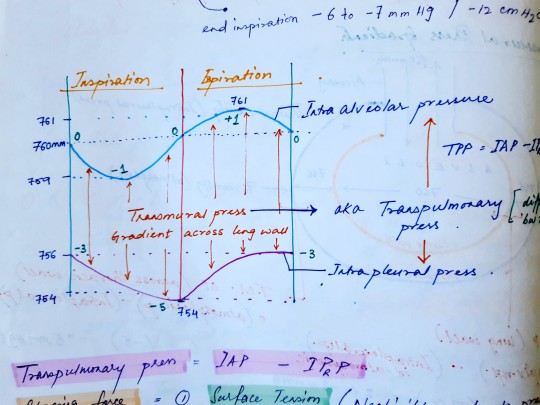 end inspiration - 6 to - 7 mm Hg / -12 cm H2O
Inspiration Expiration
761
761 +1 Intra alveolar pressure
760mm 0 0 0
TPP = IAP - 
759 -1
Transmural press → aka Transpulmonary
Gradient across lung wall press.
756 -3 -3
Intrapleural press.
754 -5 754
Transpulmonary press = IAP - IPRP.
force = ① Surface Tension